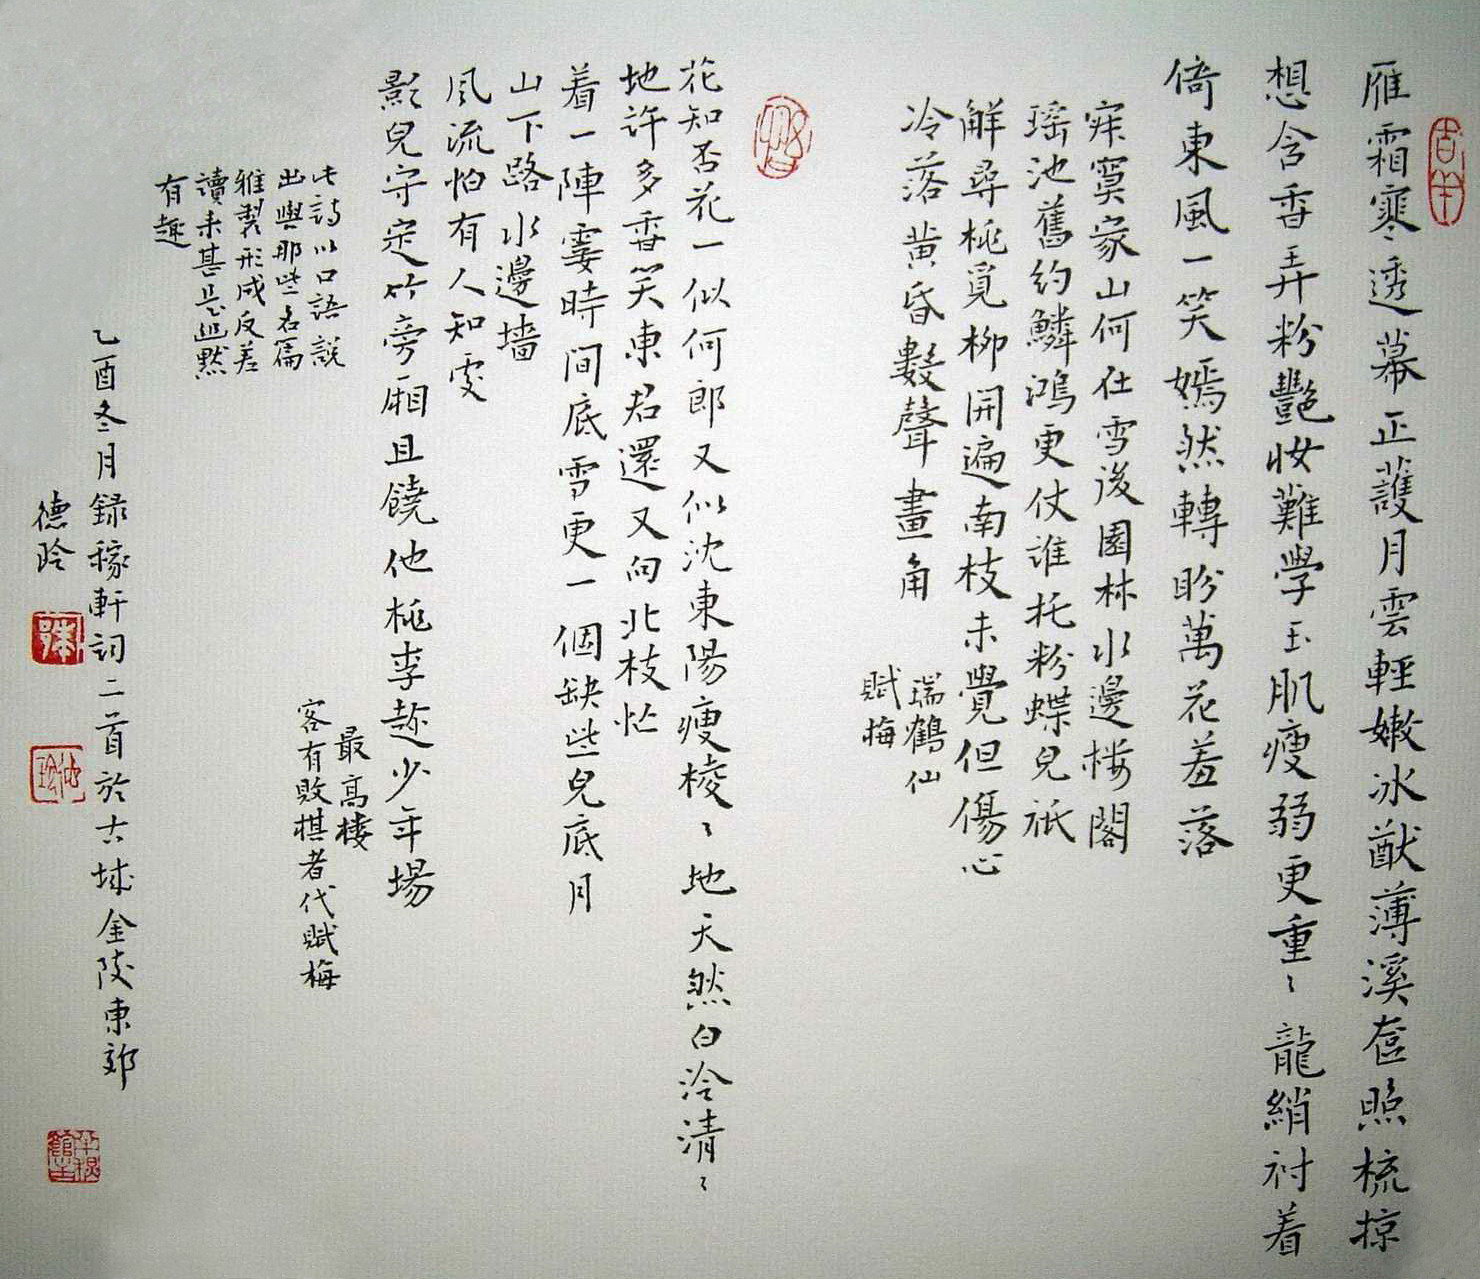 雁霜寒透幕正護月雲輕嫩冰猷薄溪奩照梳掠
想含香弄粉豔妝難學玉肌瘦弱更重〻龍綃衬着
倚東風一笑嫣然轉盼萬花羞落
寂寞家山何在雪後園林水邊楼閣
瑶池舊約鱗鴻更仗谁托粉蝶兒祇
解尋桃覓柳開遍南枝未覺但傷心
冷落黄昏數聲畫角
瑞鶴仙
賦梅
花知否花一似何郎又似沈東陽瘦棱〻地天然白冷清〻
地許多香笑東君還又向北枝忙
着一陣霎時間底雪更一個缺些兒底月
山下路水邊墻
風流怕有人知處
影兒守定竹旁厢且饒他桃李趂少年場
最高楼
客有敗棋者代賦梅
此詩以口語説
出與那些名篇
雅製形成反差
讀来甚是幽默
有趣
乙酉冬月録稼軒詞二首於古城金陵東郊
德昤